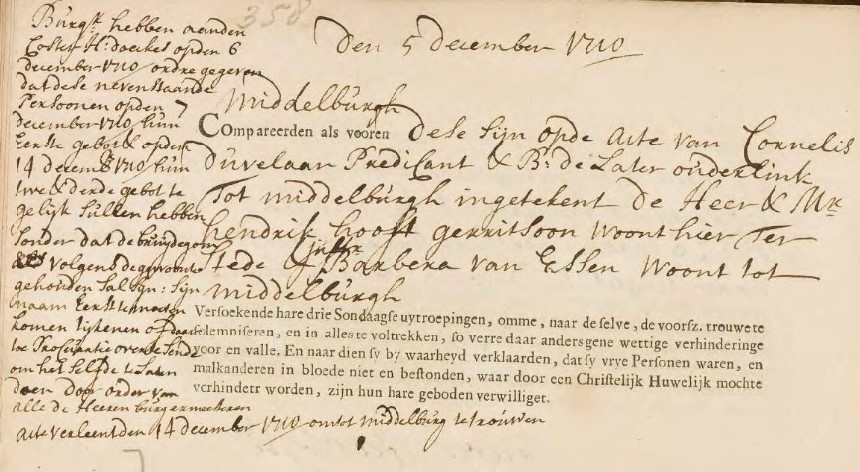 358
Den 5 December 1710
Burgrs hebben aanden
Coster H: daeckes opden 6
december 1710 ordre gegeven
dat dese nevenstaande
Persoonen opden 7
december 1710 hun
Eerste gebot & opden
14 decemb 1710 hun
twe & derde gebot te
gelijk sullen hebben
sonder dat de bruijdegom
volgens de gewoonte
gehouden sal sijn: sijn
naam Eerst te moeten
komen tijkenen of daar
toe Procuratie over te send
om het selfde te laten
doen door order van
alle de Heeren burgermeesteren
Acte verleent den 14 december 1710 om tot Middelburg te trouwen
Middelburgh
Compareerden als vooren Dese sijn op de Acte van Cornelis
Duvelaar Predicant & Br: de Later ouderlink
Tot middelburgh ingetekent De Heer & Mr
hendrik hooft gerritsoon woont hier Ter
stede & Juffr Barbera van Essen woont tot
middelburgh
Versoekende hare drie Sondaagse uytroepingen, omme, naar de selve, de voorsz. trouwe te
solemniseren, en in alles te voltrekken, so verre daar anders gene wettige verhinderinge
voor en valle. En naar dien sy by waarheyd verklaarden, dat sy vrye Personen waren, en
malkanderen in bloede niet en bestonden, waar door een Christelijk Huwelijk mochte
verhindert worden, zijn hun hare geboden verwilliget.